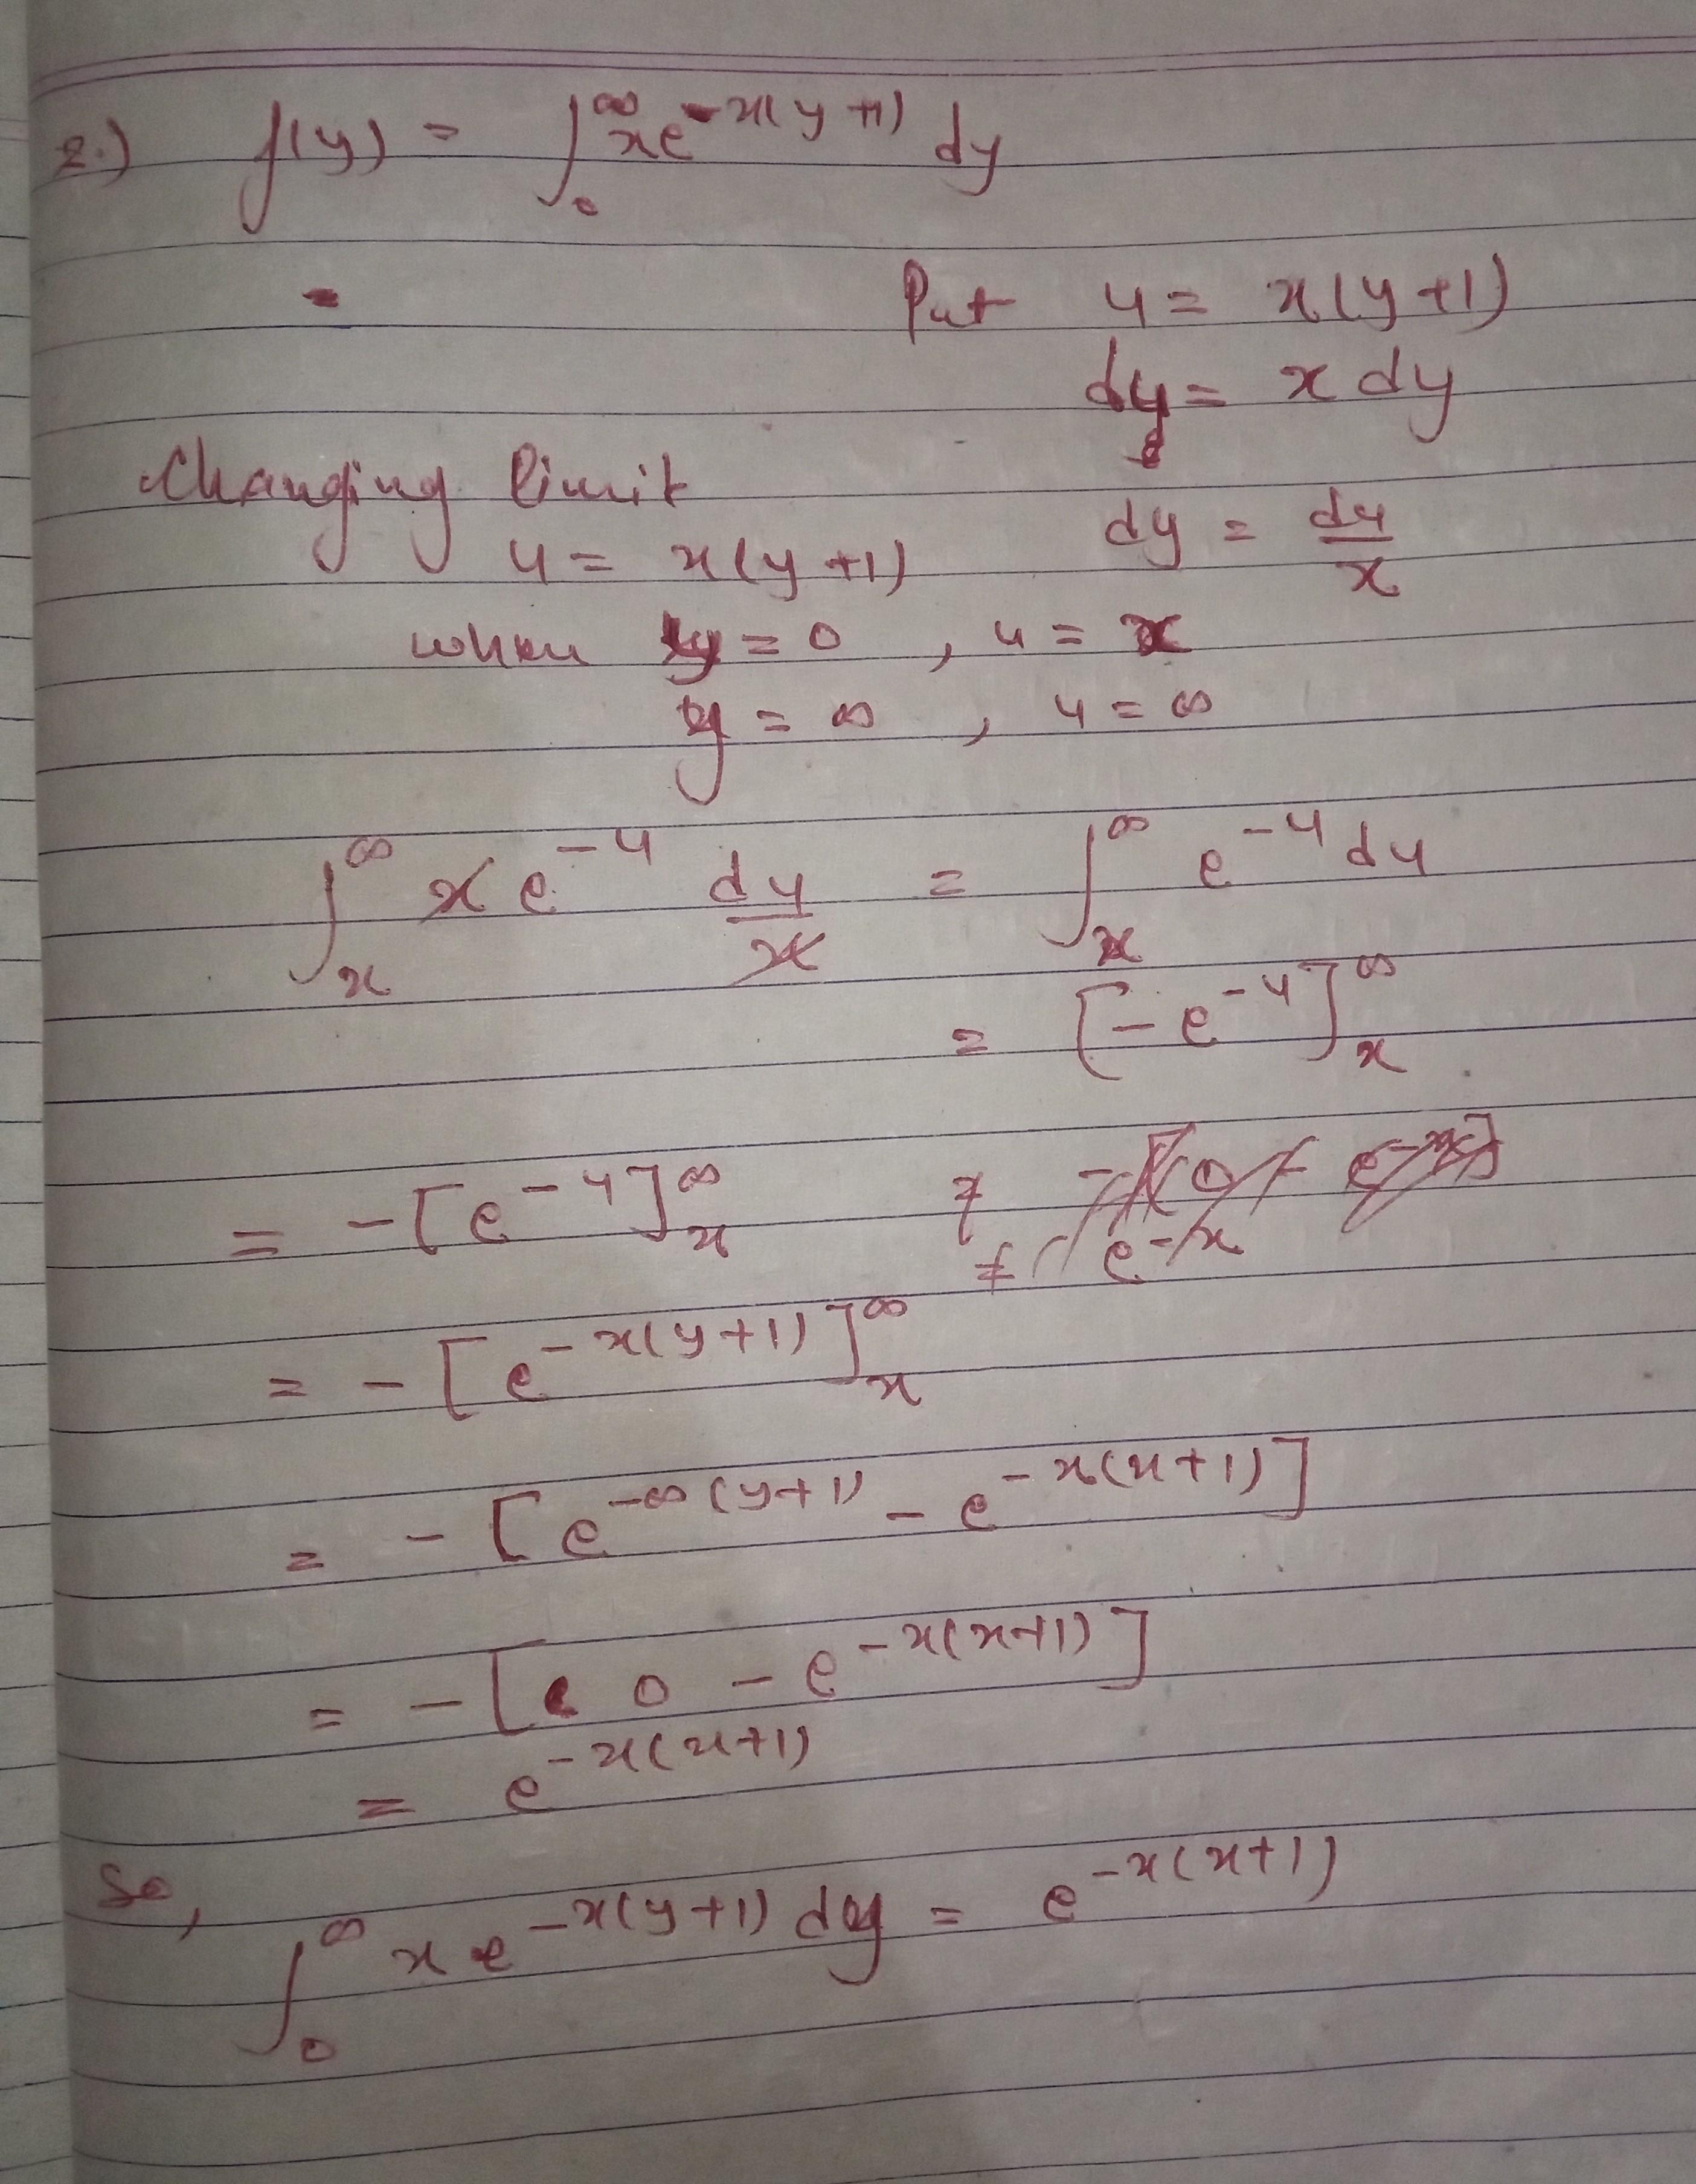 2.) f(y) = ∫₀^∞ xe^{-x(y+1)} dy
Put u = x(y+1)
du = x dy
Changing limit
dy = du/x
u = x(y+1)
when y = 0 , u = x
y = ∞ , u = ∞
∫_x^∞ x e^{-u} du/x = ∫_x^∞ e^{-u} du
= [-e^{-u}]_x^∞
= -[e^{-u}]_x^∞
= -[e^{-x(y+1)}]_x^∞
= -[e^{-∞(y+1)} - e^{-x(x+1)}]
= -[0 - e^{-x(x+1)}]
= e^{-x(x+1)}
So,
∫₀^∞ x e^{-x(y+1)} dy = e^{-x(x+1)}